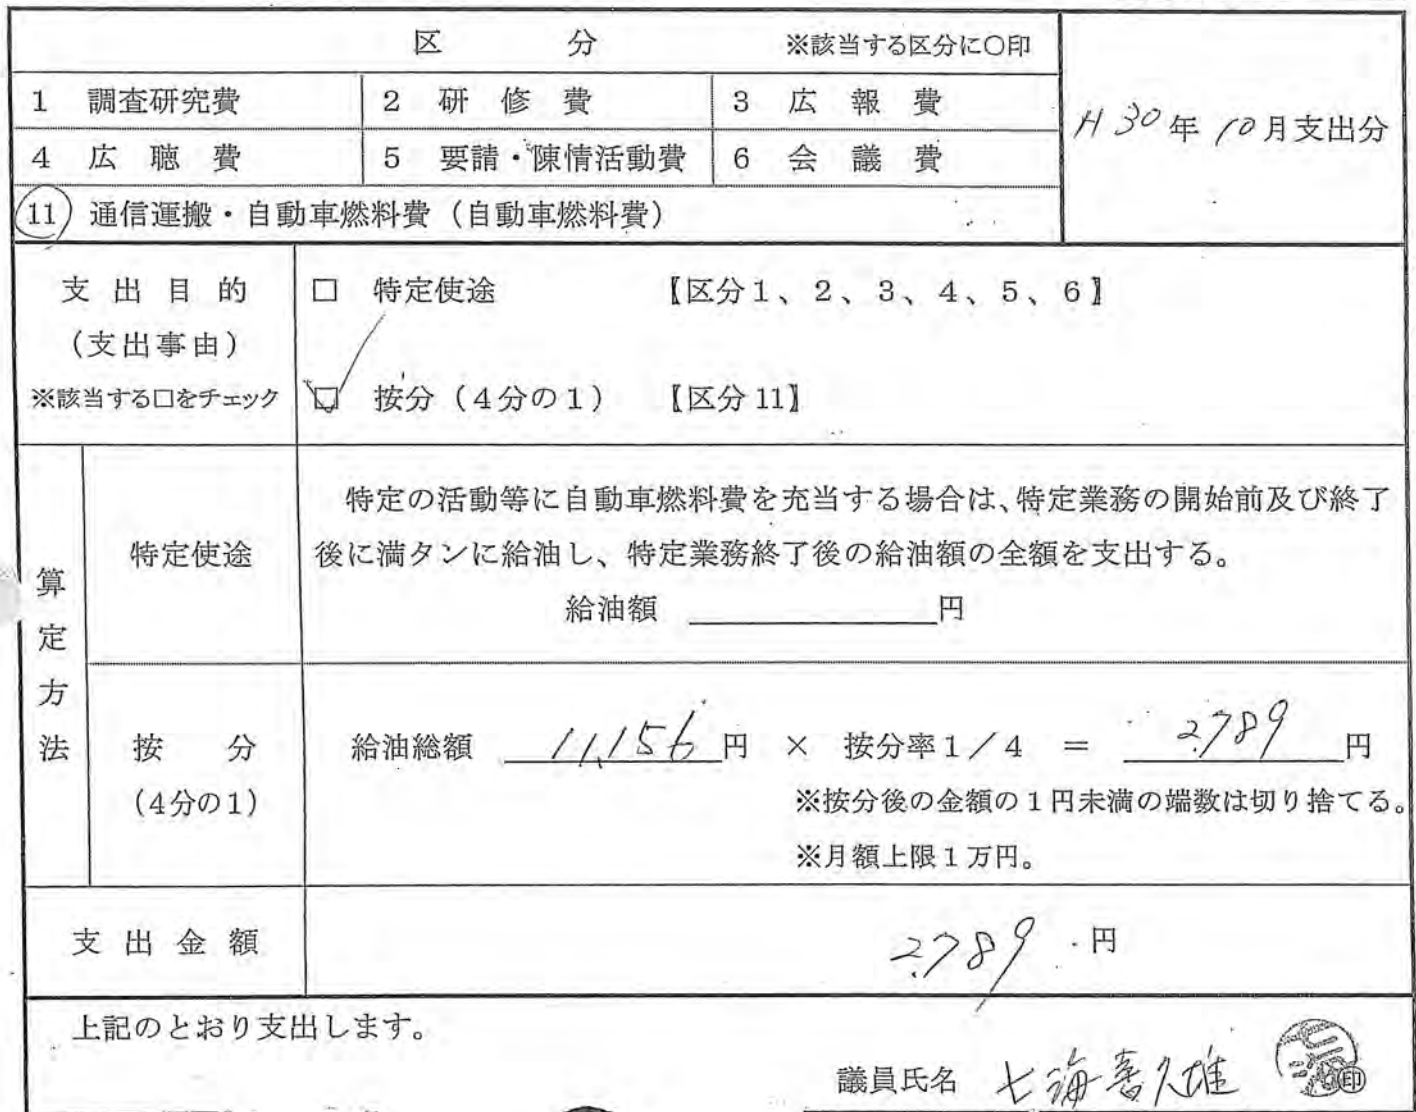 区 分 ※該当する区分に○印
1 調査研究費 2 研修費 3 広報費
H30年10月支出分
4 広聴費 5 要請・陳情活動費 6 会議費
11 通信運搬・自動車燃料費(自動車燃料費)
支出目的
(支出事由)
※該当する□をチェック
□ 特定使途 【区分1、2、3、4、5、6】
☑ 按分(4分の1) 【区分11】
算定方法
特定使途
特定の活動等に自動車燃料費を充当する場合は、特定業務の開始前及び終了
後に満タンに給油し、特定業務終了後の給油額の全額を支出する。
給油額 円
按分
(4分の1)
給油総額 11,156円 × 按分率1/4 = 2,789円
※按分後の金額の1円未満の端数は切り捨てる。
※月額上限1万円。
支出金額 2,789円
上記のとおり支出します。
議員氏名 七海喜久雄 ㊞